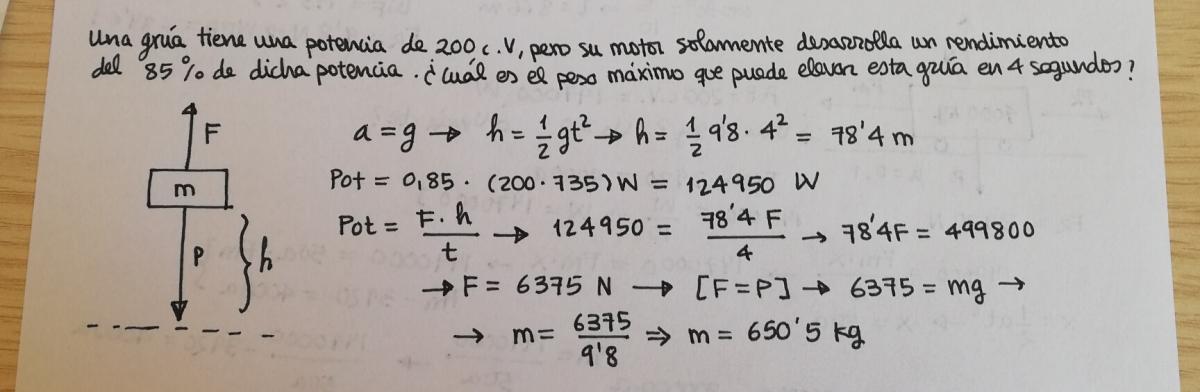 Una grúa tiene una potencia de 200 c.V, pero su motor solamente desarrolla un rendimiento
del 85% de dicha potencia. ¿Cuál es el peso máximo que puede elevar esta grúa en 4 segundos?
F
a = g → h = 1/2 gt² → h = 1/2 9'8 · 4² = 78'4 m
m
Pot = 0,85 · (200 · 735) W = 124950 W
Pot = F · h / t → 124950 = 78'4 F / 4 → 78'4F = 499800
P
h
→ F = 6375 N → [F = P] → 6375 = mg →
→ m = 6375 / 9'8 ⇒ m = 650'5 kg